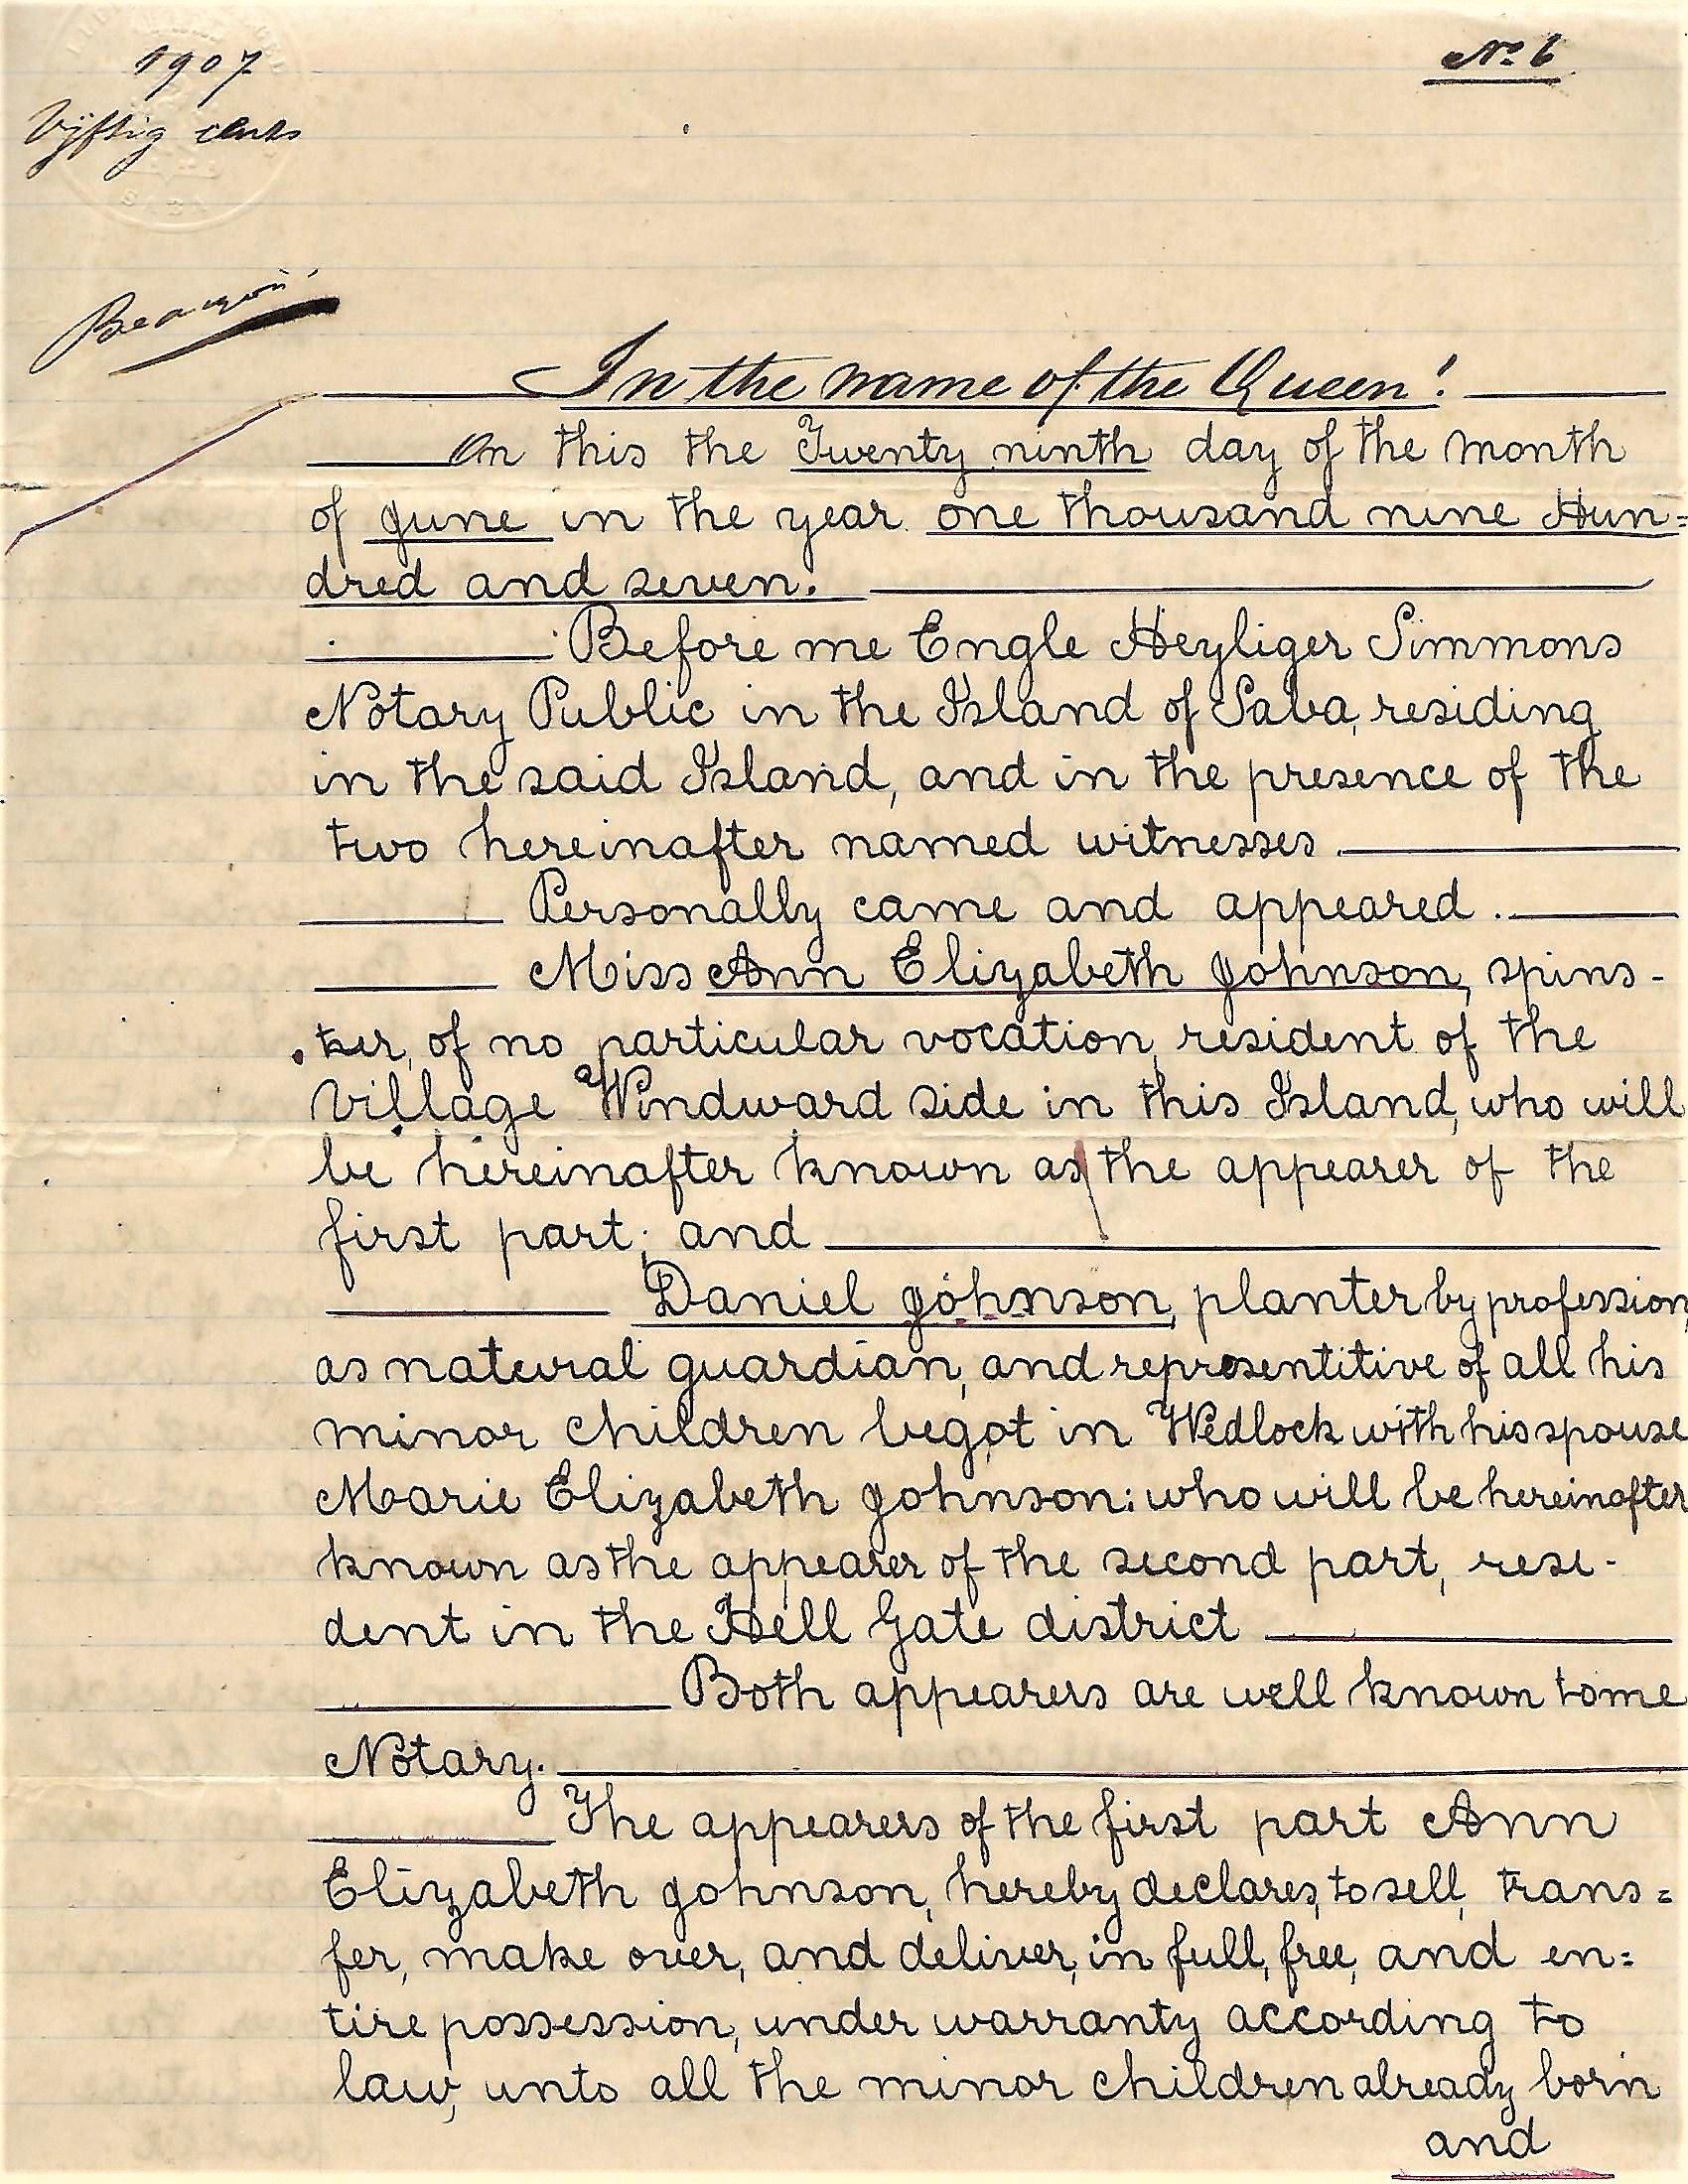 1907
No. 6
Vijftig cents
SABA
In the name of the Queen!
On this the Twenty ninth day of the month
of June in the year one thousand nine Hun=
dred and seven.
Before me Engle Heyliger Simmons
Notary Public in the Island of Saba, residing
in the said Island, and in the presence of the
two hereinafter named witnesses
Personally came and appeared.
Miss Ann Elizabeth Johnson, spins-
ter, of no particular vocation, resident of the
Village Windward side in this Island, who will
be hereinafter known as the appearer of the
first part; and
Daniel Johnson, planter by profession,
as natural guardian, and representitive of all his
minor children begot in Wedlock with his spouse
Marie Elizabeth Johnson: who will be hereinafter
known as the appearer of the second part, resi-
dent in the Hell Gate district
Both appearers are well known to me
Notary.
The appearers of the first part Ann
Elizabeth Johnson, hereby declares, to sell, trans=
fer, make over, and deliver, in full, free, and en=
tire possession, under warranty according to
law, unto all the minor children already born
and